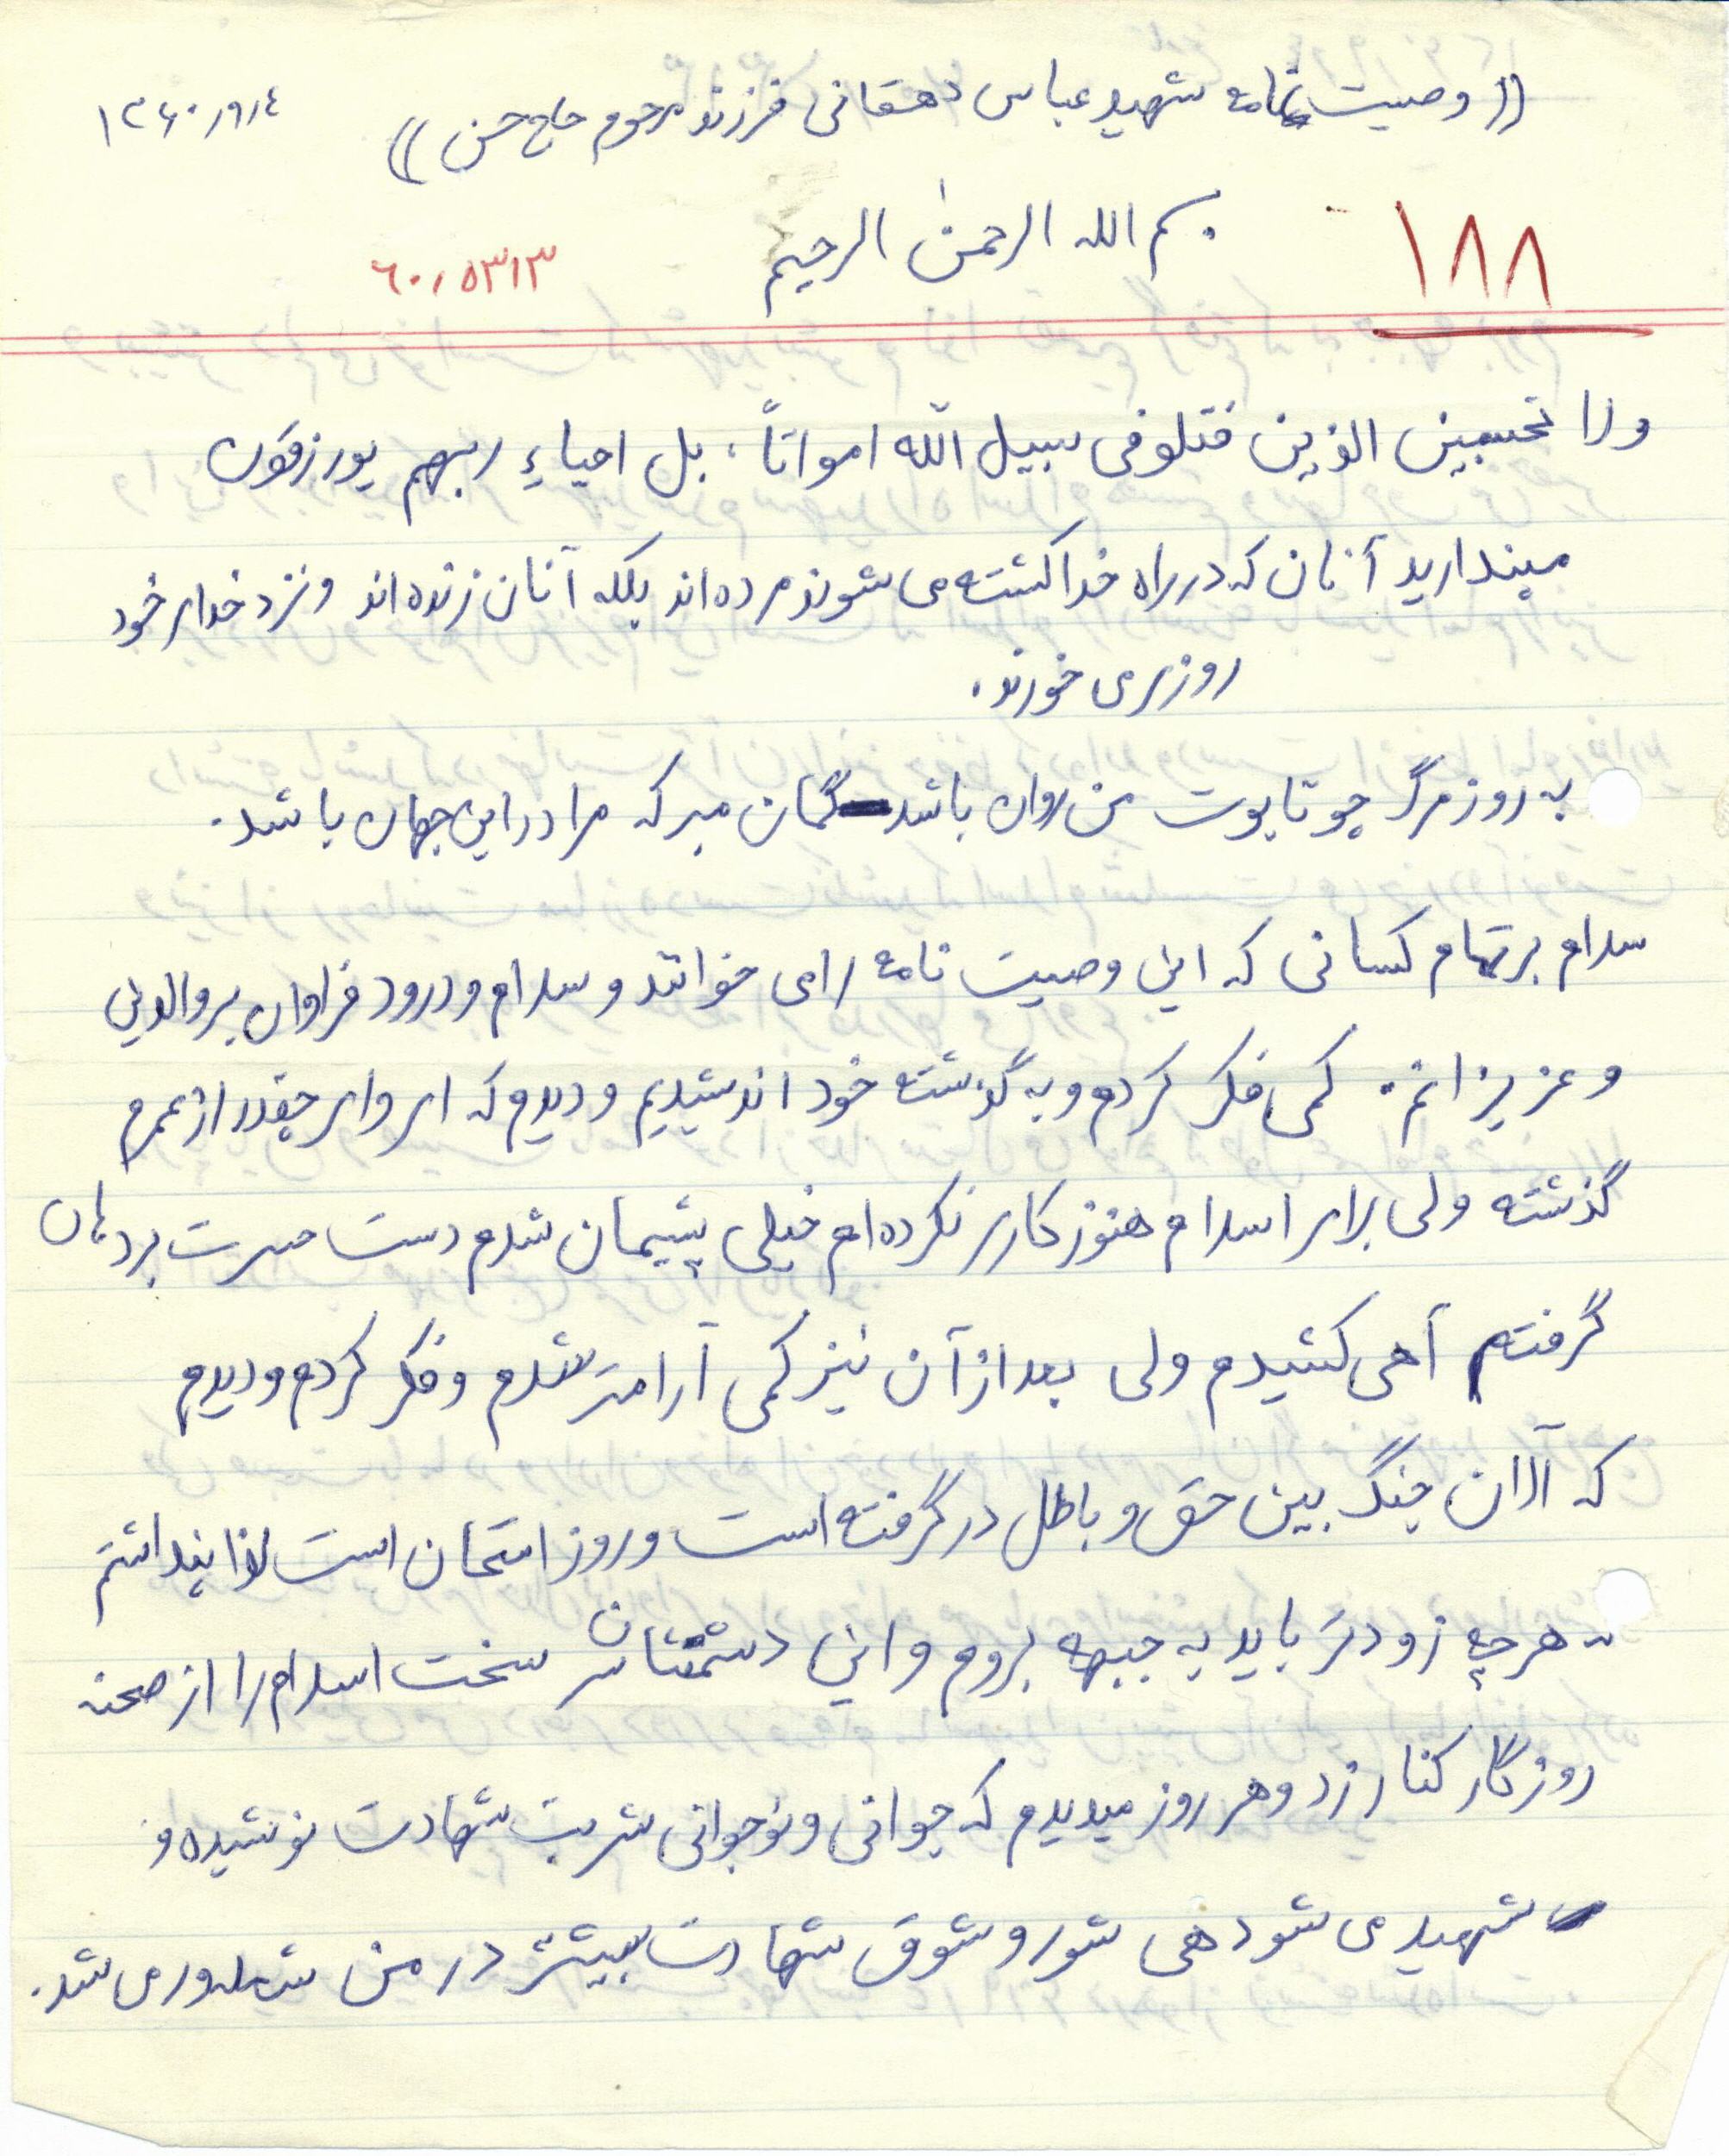 ((وصیت نامه شهید عباس دهقانی فرزند مرحوم حاج حسن)) ۱۳۶۰/۹/۴
بسم الله الرحمن الرحیم
۱۸۸
۶۰/۵۳۱۳
ولا تحسبین الذین قتلوفی سبیل الله امواتاً، بل احیاءِ ربهم یورزقون
مپندارید آنان که در راه خدا کشته می شوند مرده اند بلکه آنان زنده اند و نزد خدای خود
روزی می خورند.
به روز مرگ چو تابوت من روان باشد گمان مبر که مرا در این جهان باشد.
سلام بر تمام کسانی که این وصیت نامه را می خوانند و سلام و درود فراوان بر والدین
و عزیزانم. کمی فکر کردم و به گذشته خود اندیشیدیم و دیدم که ای وای چقدر از عمرم
گذشته ولی برای اسلام هنوز کاری نکرده ام خیلی پشیمان شدم دست حسرت بر دهان
گرفتم آهی کشیدم ولی بعد از آن نیز کمی آرامتر شدم و فکر کردم و دیدم
که الان جنگ بین حق و باطل در گرفته است و روز امتحان است لذا پنداشتم
هر چه زودتر باید به جبهه بروم و این دشمنان سر سخت اسلام را از صحنه
روزگار کنار زد و هر روز میدیدم که جوانی و نوجوانی شربت شهادت نوشیده و
شهید می شود هی شور و شوق شهادت بیشتر در من شعله ور می شد.